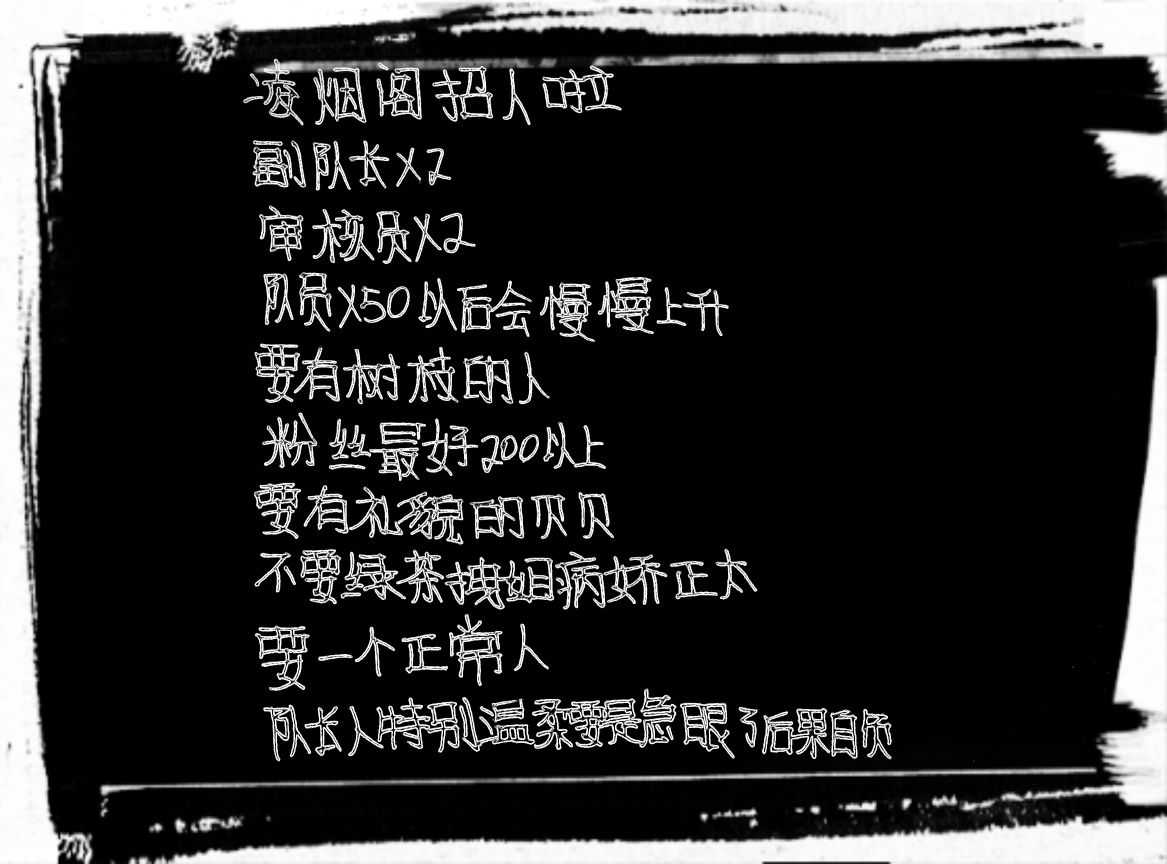 凌烟阁招人啦
副队长X2
审核员X2
队员X50以后会慢慢上升
要有树枝的人
粉丝最好200以上
要有礼貌的贝贝
不要绿茶拽姐病娇正太
要一个正常人
队长人特别温柔要是急眼了后果自负